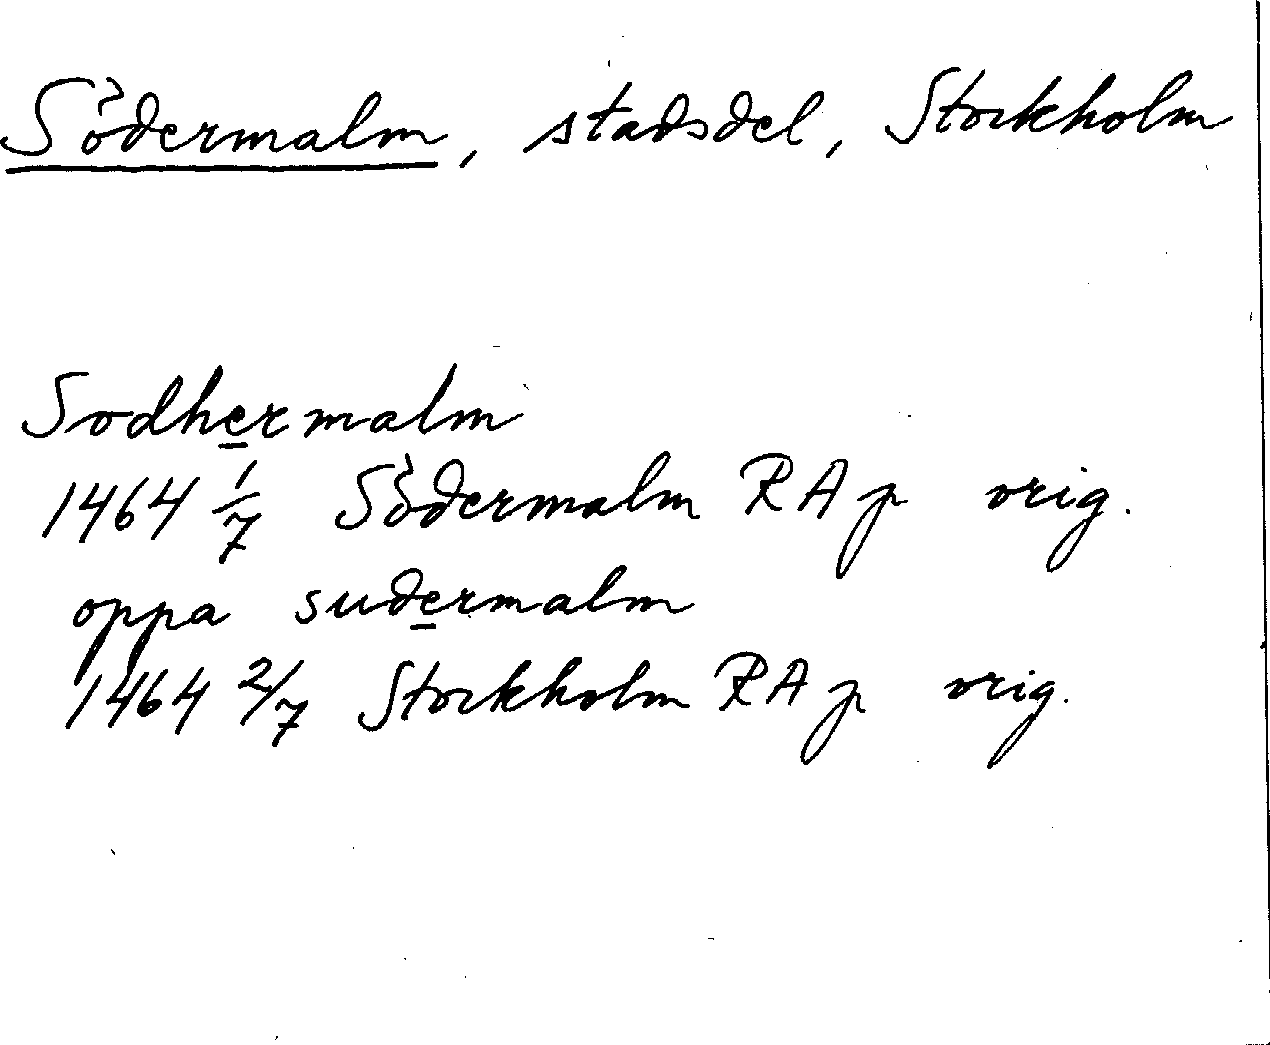 Södermalm, stadsdel, Stockholm
Sodhermalm
1464 1/7 Södermalm RA p orig.
oppa sudermalm
1464 2/7 Stockholm RA p orig.